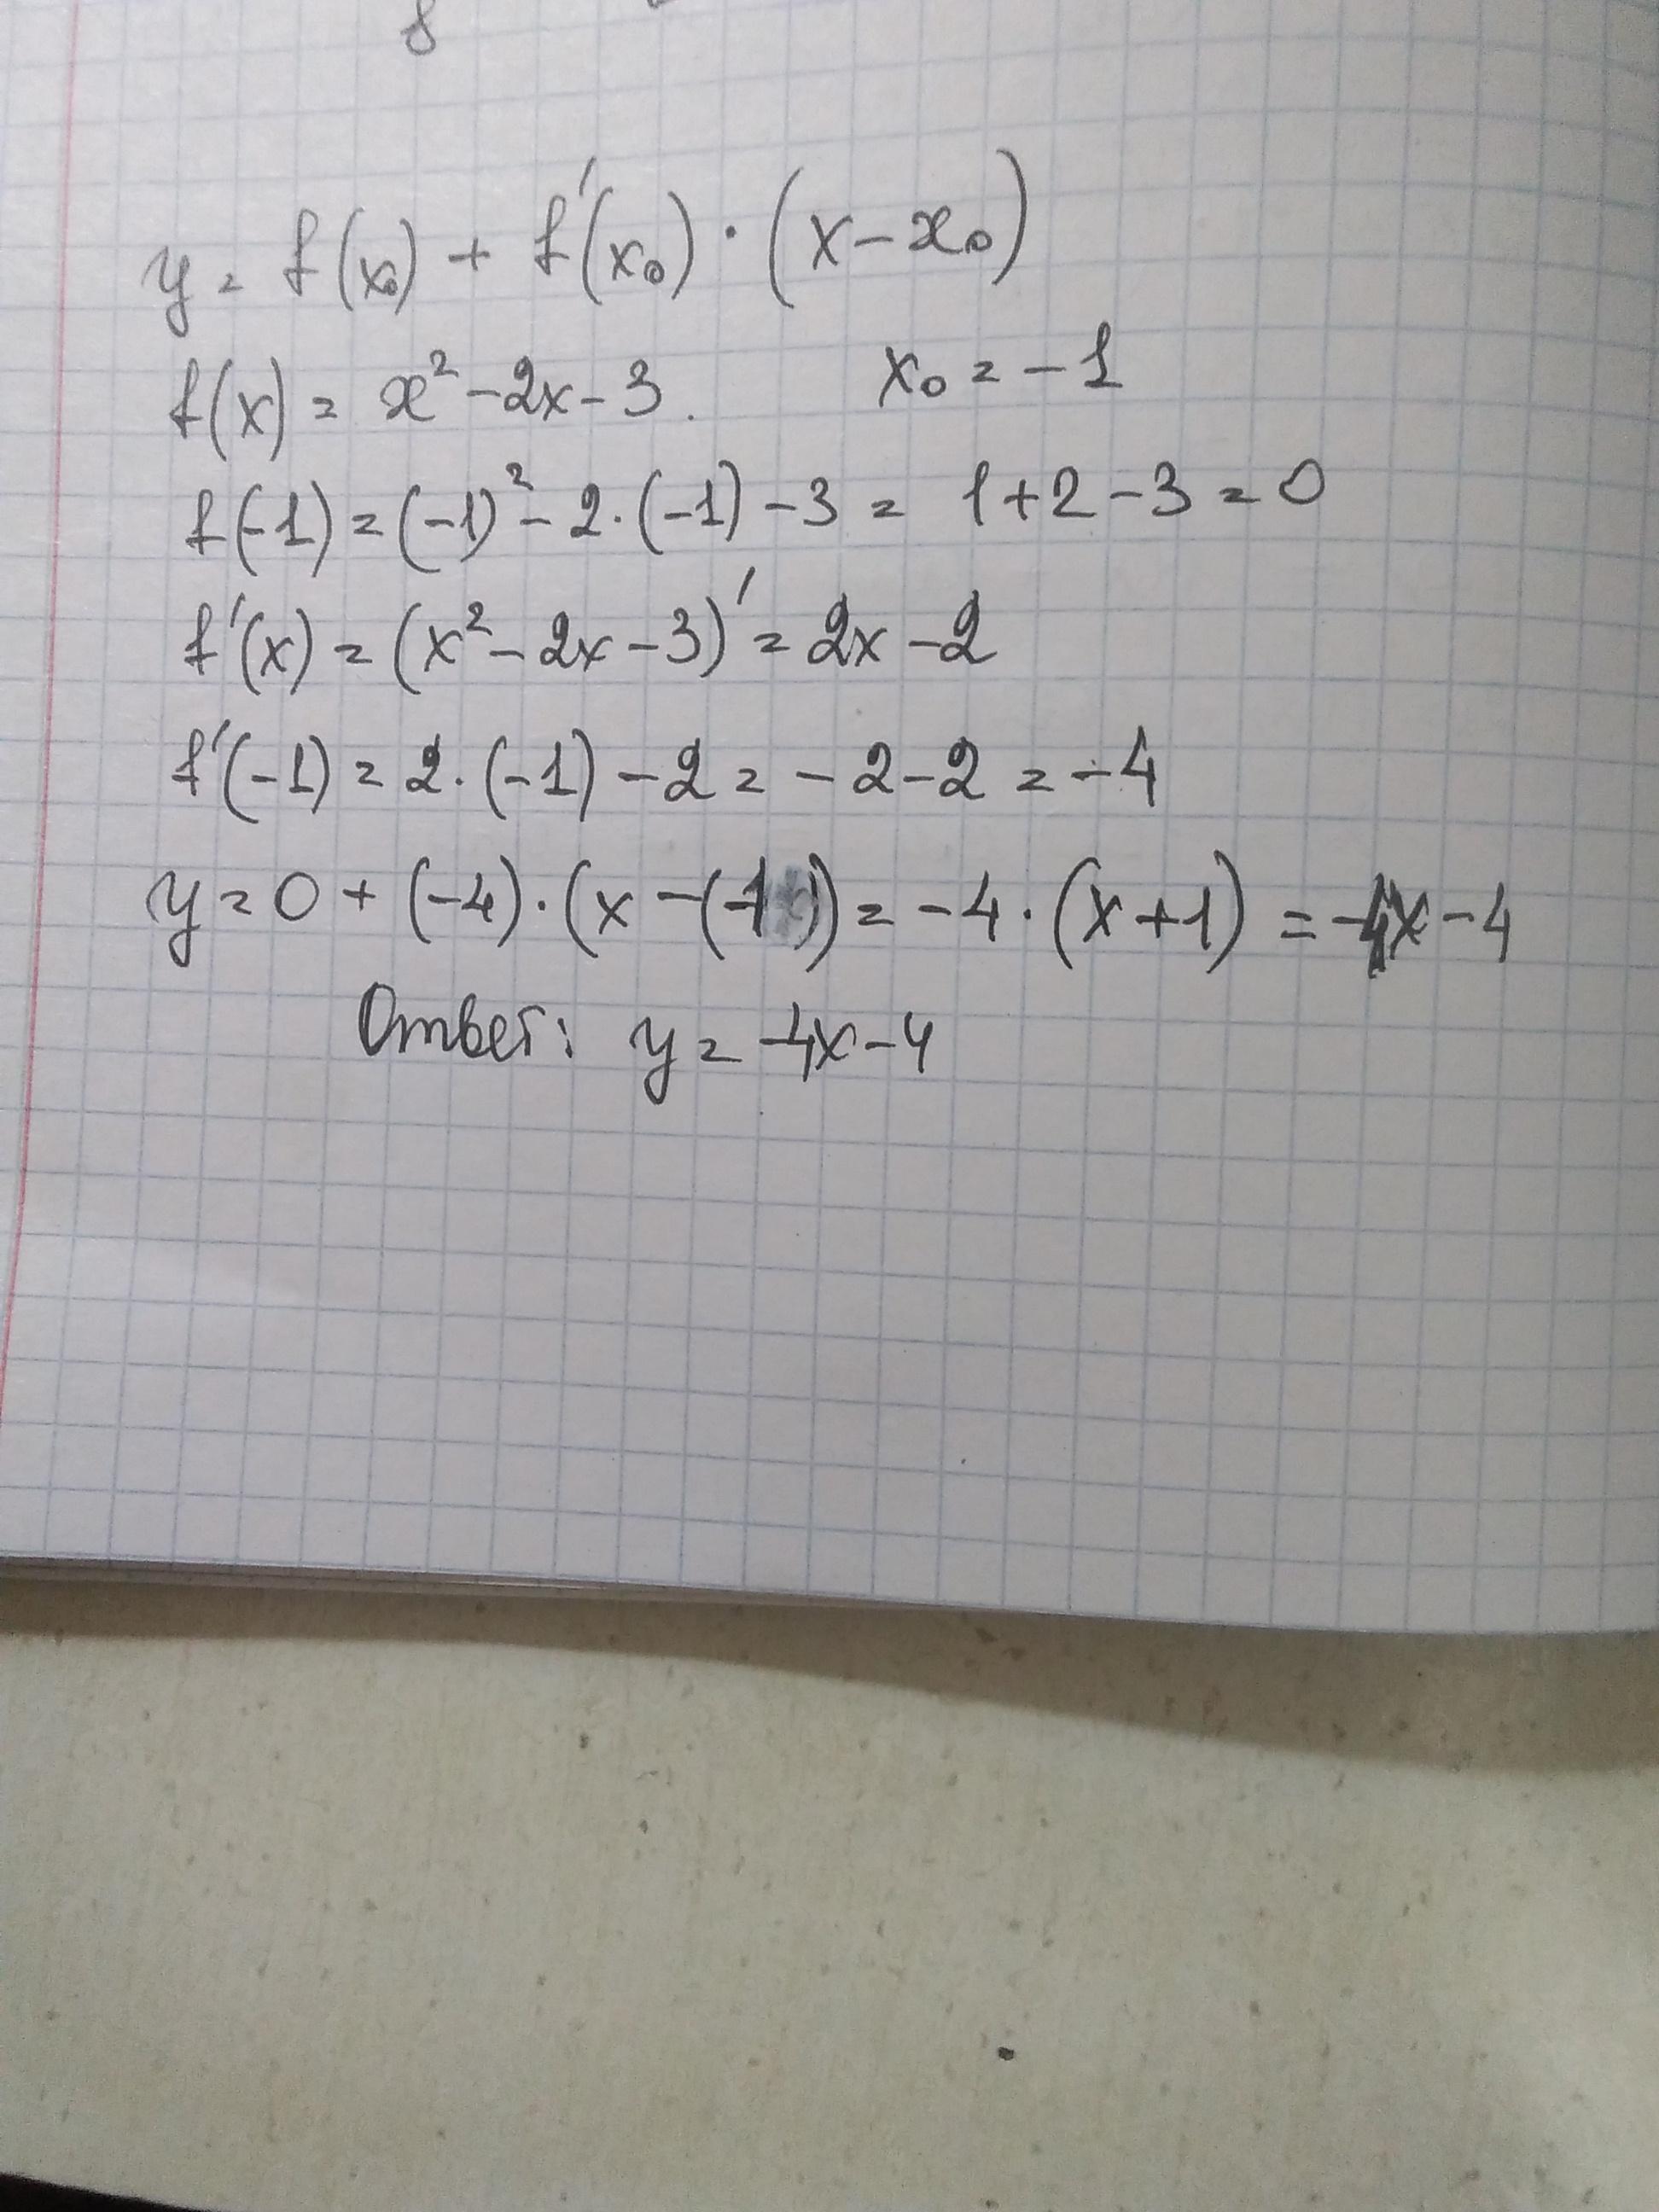 8
y = f(x₀) + f'(x₀) · (x – x₀)
f(x) = x² – 2x – 3. x₀ = – 1
f(-1) = (-1)² – 2 · (-1) – 3 = 1 + 2 – 3 = 0
f'(x) = (x² – 2x – 3)' = 2x – 2
f'(-1) = 2 · (-1) – 2 = – 2 – 2 = – 4
y = 0 + (-4) · (x – (-1)) = – 4 · (x + 1) = -4x – 4
Ответ: y = -4x – 4